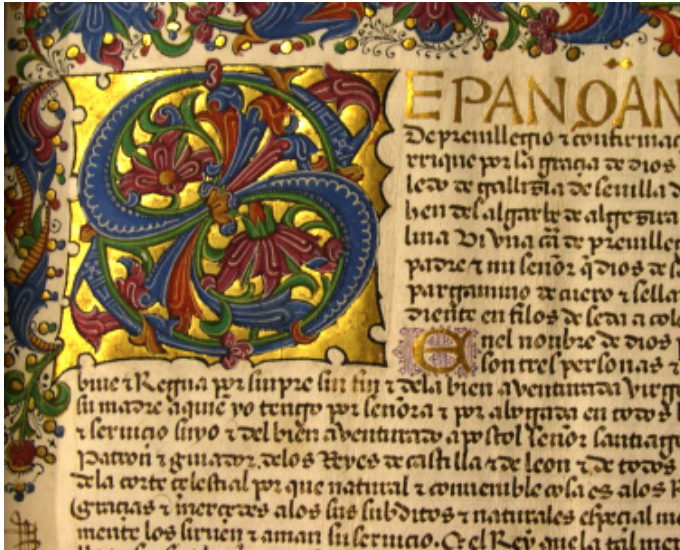 SEPAN QUAN
De preuillegio τ confirmac
rrique por la gracia de dios
ledo de gallizia de seuilla d
hen del algarbe de algezira
lina Vi vna cā de preuilleg
padre τ mi señor q̄ dios de s
pargamino de cuero τ sella
diente en filos de seda a colo
Enel nonbre de dios p
son tres personas τ
biue τ Regna por sienpre sin fin τ dela bien aventurada virge
su madre a quiē yo tengo por señora τ por abogada en todos l
τ seruicio suyo τ del bien aventurado apostol señor santiago
Patron τ guiador delos Reyes de castilla τ de leon τ de todos
dela corte celestial por que natural τ conuenible cosa es alos R
Gracias τ mercedes alos sus subditos τ naturales especial me
mente los siruen τ aman su seruicio. Et el Rey que la tal merc